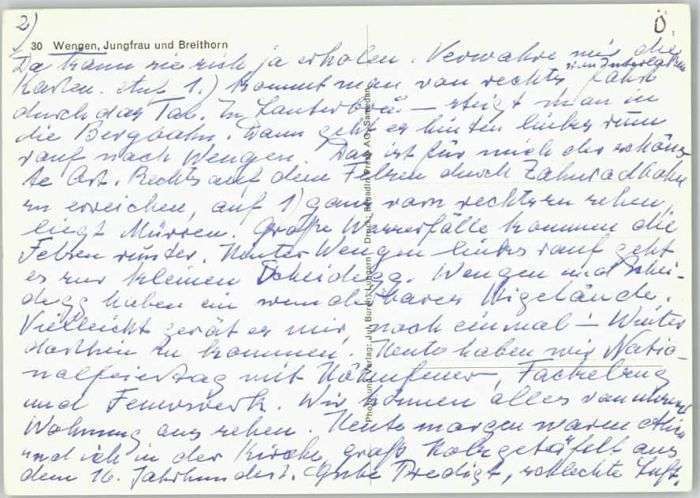 2)
Ö
30 Wengen, Jungfrau und Breithorn
Da kann sie sich ja erholen. Verwahre mir die
Karten. Auf 1.) kommt man von rechts v. Interlaken
durch das Tal. In Lauterbru – steigt man in
die Bergbahn. Dann geht es hinten links rum
rauf nach Wengen. Das ist für mich der schöns-
te Ort. Rechts auf dem Felsen durch Zahnradbahn
zu erreichen, auf 1) ganz vorn rechts zu sehen,
liegt Mürren. Große Wasserfälle kommen die
Felsen runter. Hinter Wengen links rauf geht
es zur kleinen Scheidegg. Wengen und Schei-
degg haben ein wunderbares Skigelände.
Vielleicht gerät es mir noch einmal – Winter
dorthin zu kommen. Heute haben wir Natio-
nalfeiertag mit Höhenfeuer, Fackelzug
und Feuerwerk. Wir können alles von unserer
Wohnung aus sehen. Heute morgen waren
und ich in der Kirche, groß, Holzgetäfelt aus
dem 16. Jahrhundert. Gute Predigt, schlechte Luft.
Photo und Verlag: Jul. Burchi, Luzern Druck: Engadin Press AG, Samedan